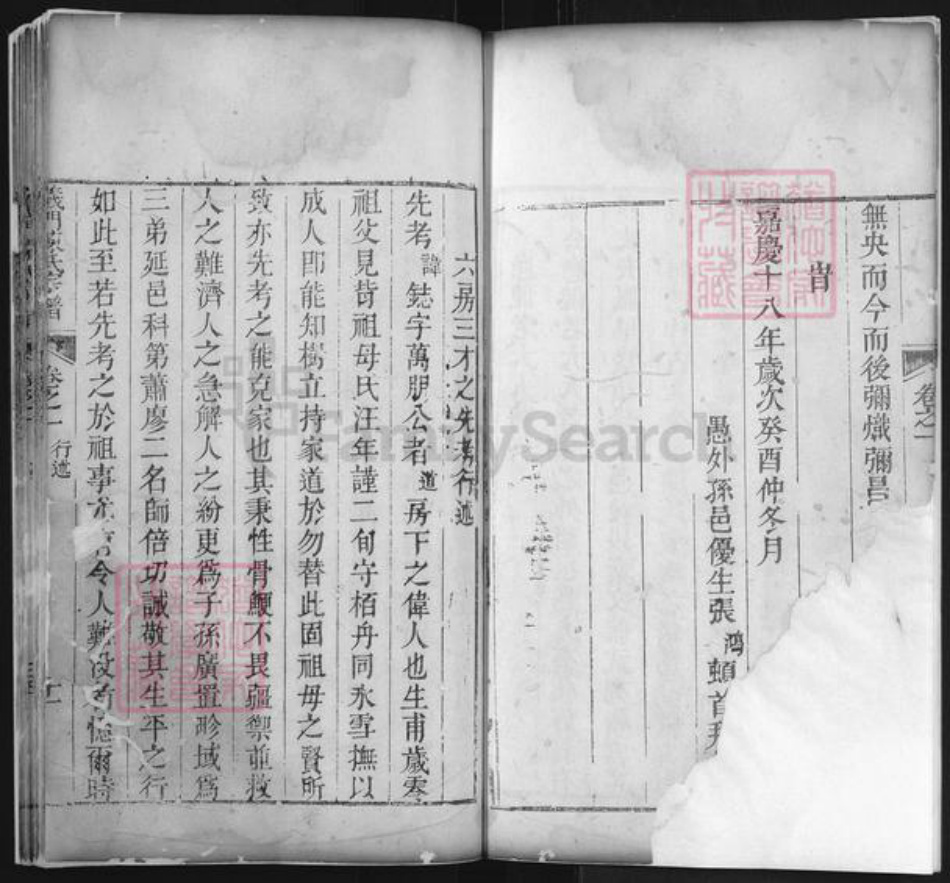 無央而今而後彌熾彌昌
旹
嘉慶十八年歲次癸酉仲冬月
愚外孫邑優生張鴻頓首拜
六房三才之先考行述
先考諱鋕字萬朋公者道房下之偉人也生甫歲零
祖父見背祖母氏汪年謹二旬守栢舟同氷雪撫以
成人即能知樹立持家道於勿替此固祖母之賢所
致亦先考之能克家也其秉性骨鯁不畏疆禦並救
人之難濟人之急解人之紛更為子孫廣置畛域為
三弟延邑科第蕭廖二名師倍功誠敬其生平之行
如此至若先考之於祖事尤有令人難沒者憶爾時
義門陳氏宗譜 卷之一 行述
卷之一
FamilySearch